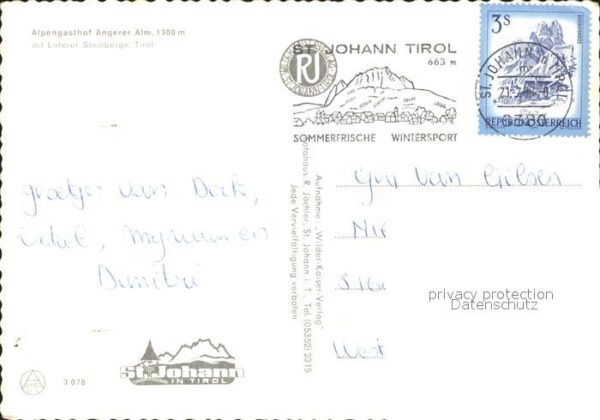 Alpengasthof Angerer Alm, 1300 m
mit Loferer Steinberge, Tirol
ST. JOHANN TIROL
663 m
RJ
SOMMERFRISCHE WINTERSPORT
3 S
REPUBLIK ÖSTERREICH
ST. JOHANN in TIROL
6380
groetjes van Dirk,
Myriam en
Dimitri
Aufnahme: „Wilder-Kaiser-Verlag"
Fotohaus R. Jöchler, St. Johann i. T., Tel. (05352) 2315
Jede Vervielfältigung verboten
Guy Van
privacy protection
Datenschutz
West
St. Johann
IN TIROL
3 078